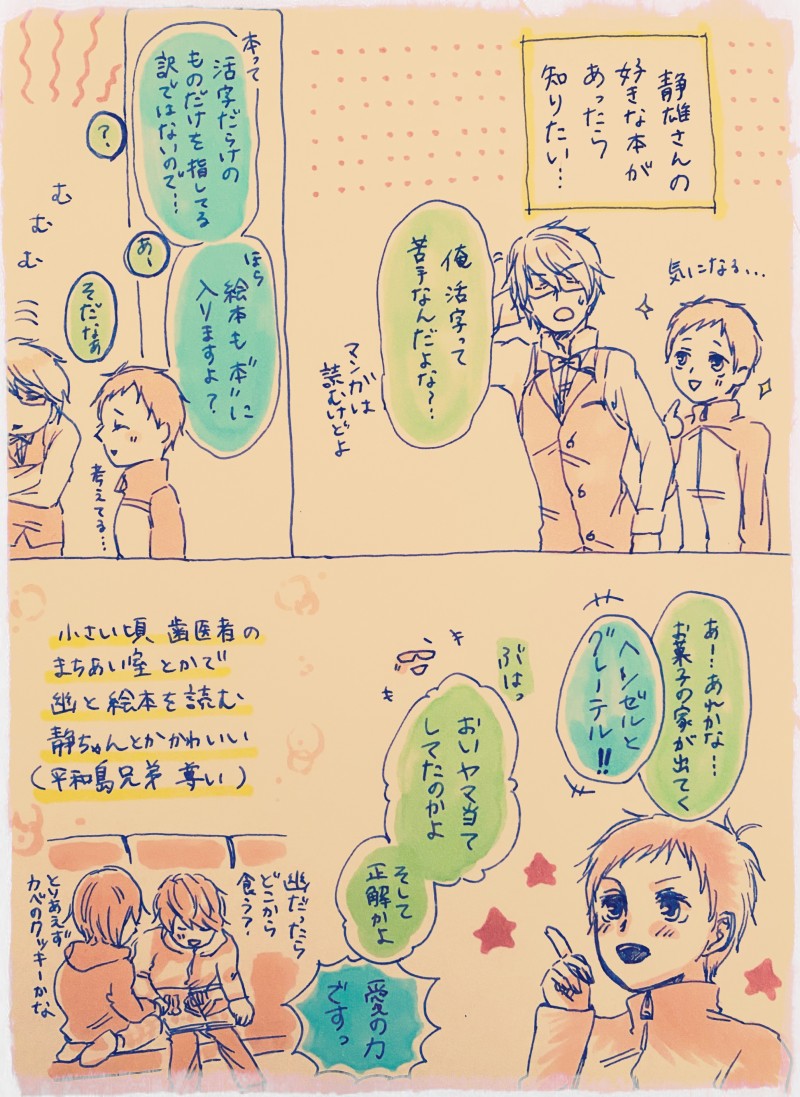 静雄さんの
好きな本が
あったら
知りたい…
気になる…
俺 活字って
苦手なんだよな?…
マンガは
読むけどよ
本って
活字だらけの
ものだけを指してる
訳ではないので…
?
あ、
ほら
絵本も“本”に
入りますよ?
そだなあ
む
む
む
考えてる…
あー…あれかな…
お菓子の家が出てく
ヘンゼルと
グレーテル!!
ぶはっ
おいヤマ当て
してたのかよ
そして
正解かよ
愛の力
ですっ
小さい頃 歯医者の
まちあい室とかで
幽と絵本を読む
静ちゃんとかかわいい
(平和島兄弟 尊い)
幽だったら
どこから
食う?
とりあえず
カベのクッキーかな